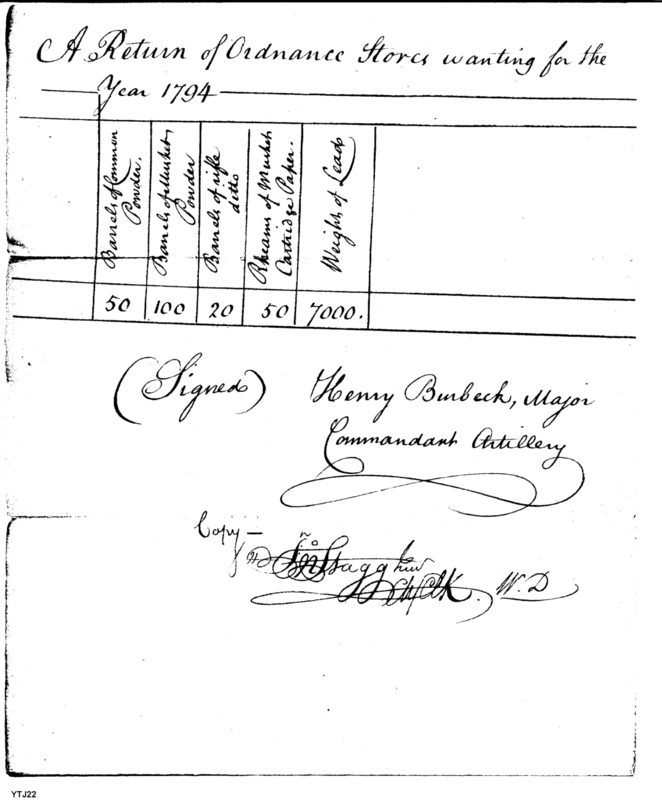 A Return of Ordnance Stores wanting for the
Year 1794
Barrels of Common
Powder.
Barrels of Musket
Powder
Barrels of rifle
ditto
Rheams of Musket
Cartridge Paper.
Weight of Lead
50 100 20 50 7000.
(Signed) Henry Burbeck, Major
Commandant Artillery
Copy —
Jno Stagg Junr
Ch Clk. W. D
YTJ22